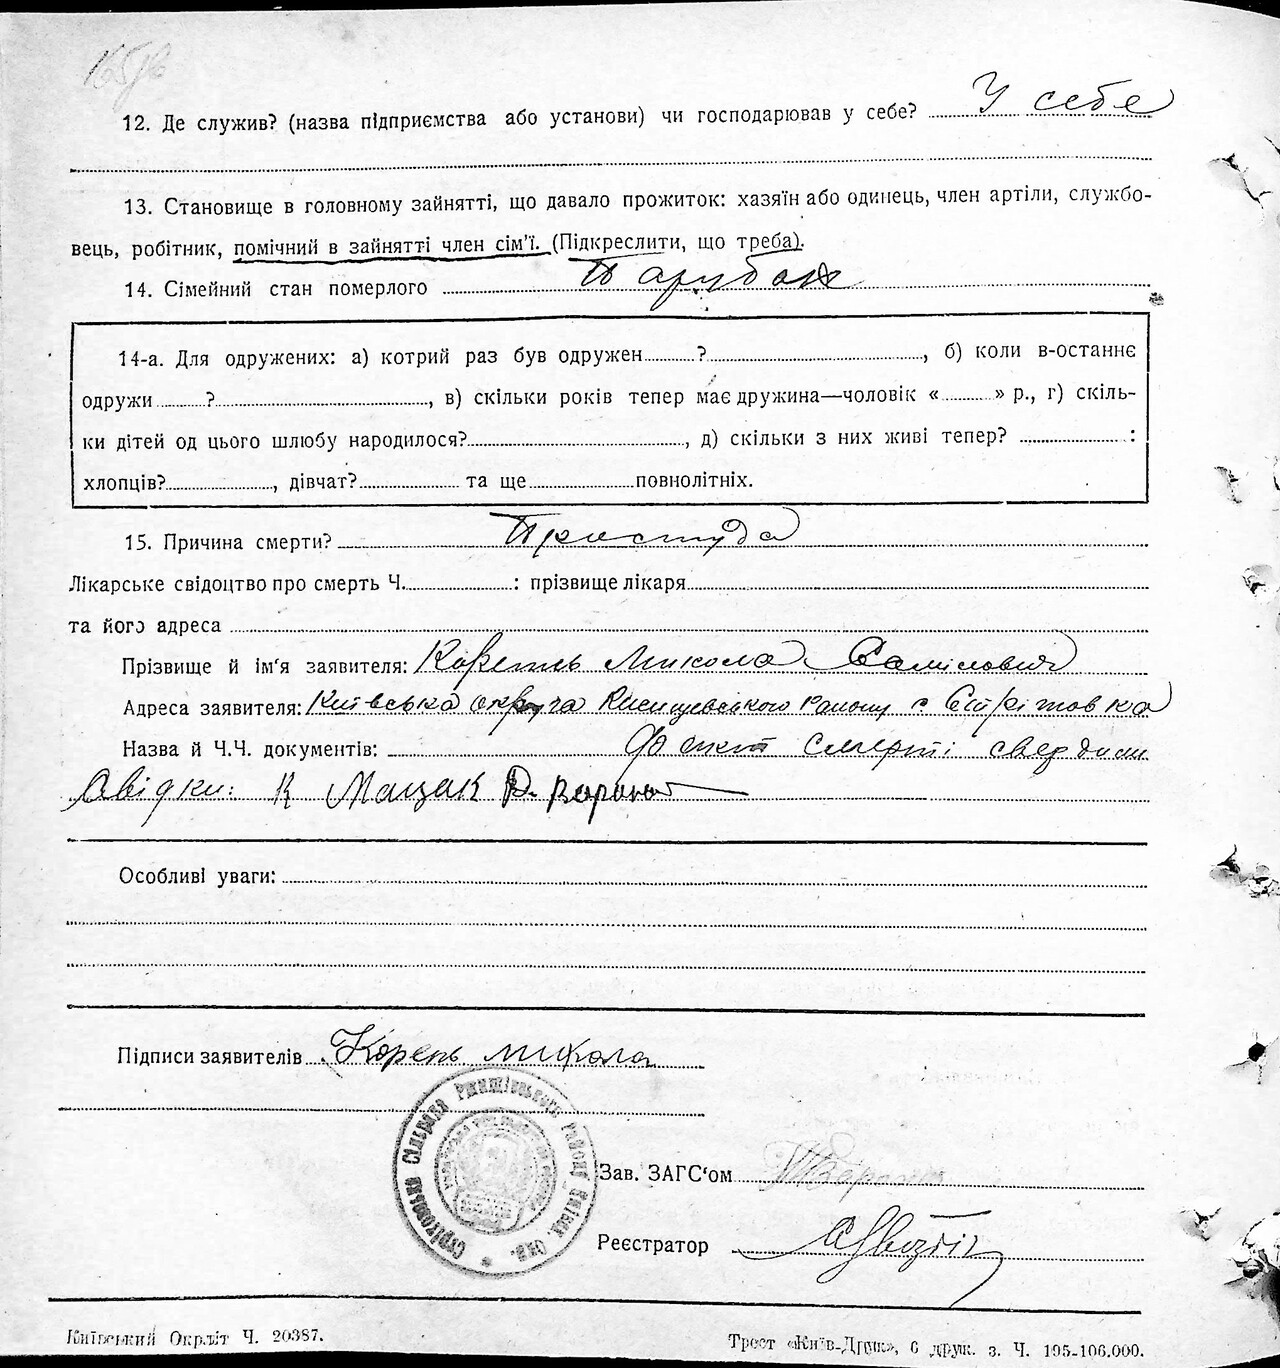 12. Де служив? (назва підприємства або установи) чи господарював у себе? У себе
13. Становище в головному зайнятті, що давало прожиток: хазяїн або одинець, член артіли, службо-
вець, робітник, помічний в зайнятті член сім'ї. (Підкреслити, що треба).
14. Сімейний стан померлого Парубок
14-а. Для одружених: а) котрий раз був одружен ? , б) коли в-останнє
одружи ? , в) скільки років тепер має дружина—чоловік « » р., г) скіль-
ки дітей од цього шлюбу народилося? , д) скільки з них живі тепер? :
хлопців? , дівчат? та ще повнолітніх.
15. Причина смерти? Простуда
Лікарське свідоцтво про смерть Ч. : прізвище лікаря
та його адреса
Прізвище й ім'я заявителя: Корень Микола
Адреса заявителя: Київська округа району с. Стрітовка
Назва й Ч.Ч. документів: Факт смерті свердили
свідки: К Мацак
Особливі уваги:
Підписи заявителів Корень Микола
Сільрада Ржищівського району Київ. Окр.
Зав. ЗАГС'ом
Реєстратор
Київський Окрліт Ч. 20387.
Трест «Київ-Друк», 6 друк. з. Ч. 195-106.000.